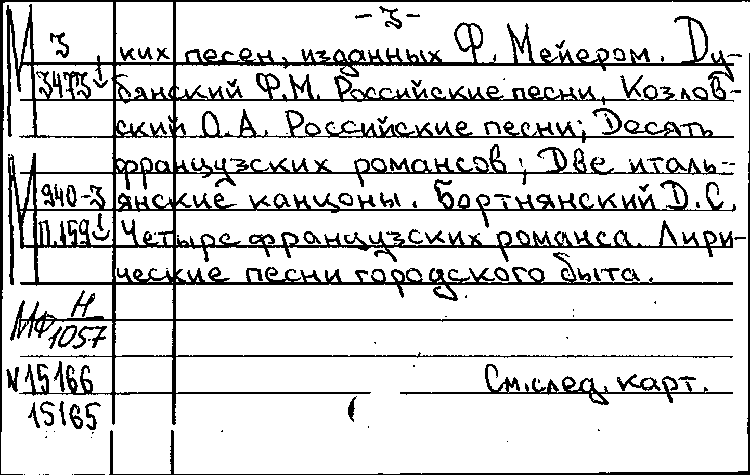 -3-
М З 3473↓ ких песен, изданных Ф. Мейером. Ду-
бянский Ф.М. Российские песни, Козлов-
ский О.А. Российские песни; Десять
французских романсов; Две италь-
М 940-3 янские канцоны. Бортнянский Д.С.
П.159↓ Четыре французских романса. Лири-
ческие песни городского быта.
МФ Н/1057
N 15166 См.след. карт.
15165